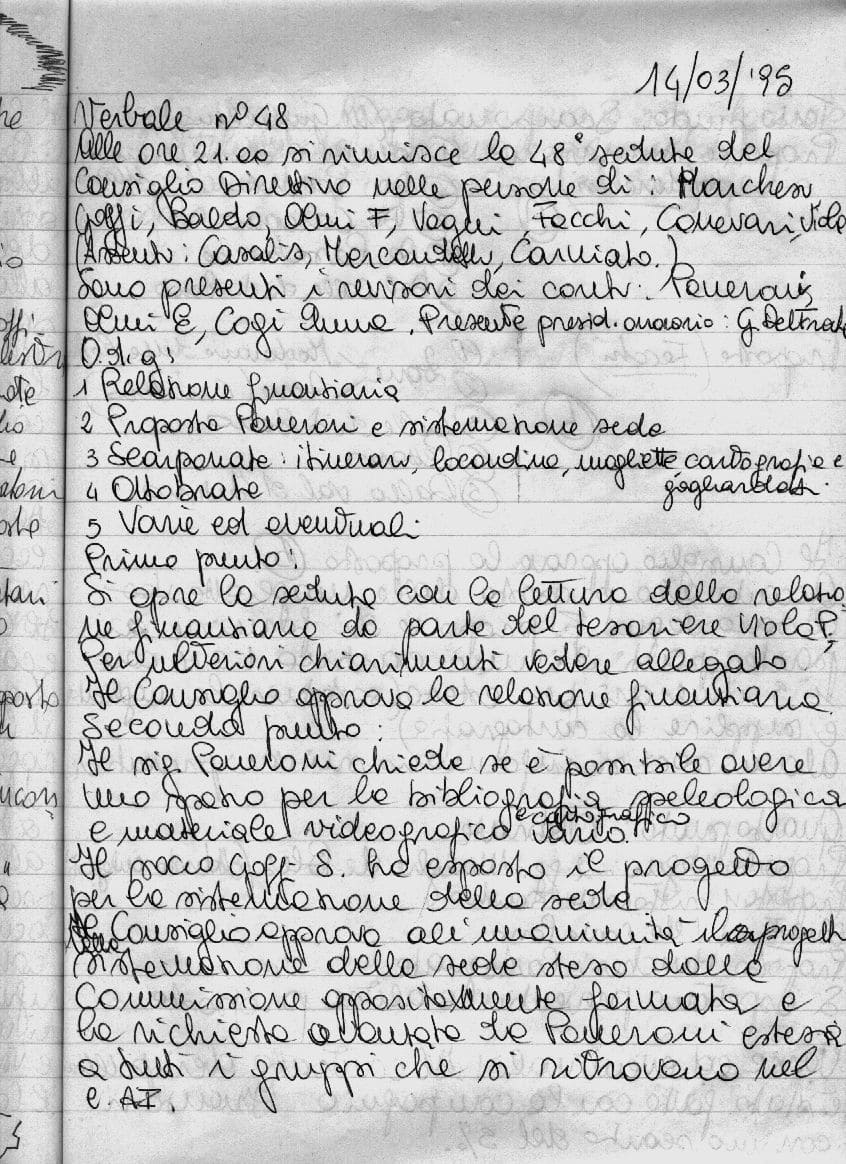 14/03/'95
Verbale n° 48
Alle ore 21.00 si riunisce la 48° seduta del
Consiglio Direttivo nelle persone di: Marchesi
Goffi, Baldo, Olmi F, Vaghi, Facchi, Canevari, Viola
(Assenti: Casalis, Mercandelli, Carniato.)
Sono presenti i revisori dei conti: Paneroni,
Olmi E, Cogi Anna. Presente presid. onorario: G. Beltrati
O.d.g:
1 Relazione finanziaria
2 Proposta Paneroni e sistemazione sede
3 Scarponate: itinerari, locandina, magliette, cartografia e
gagliardetti.
4 Ottobrate
5 Varie ed eventuali.
Primo punto:
Si apre la seduta con la lettura della relazio
ne finanziaria da parte del tesoriere Viola P.
Per ulteriori chiarimenti vedere allegato
Il Consiglio approva la relazione finanziaria.
Secondo punto:
Il sig. Paneroni chiede se è possibile avere
uno spazio per la bibliografia speleologica
e cartografico
e materiale videografico vario.
Il socio Goffi S. ha esposto il progetto
per la sistemazione della sede
Il Consiglio approva all'unanimità il progetto
della
sistemazione della sede steso dalla
Commissione appositamente formata e
la richiesta avanzata da Paneroni estesa
a tutti i gruppi che si ritrovano nel
C.A.I.